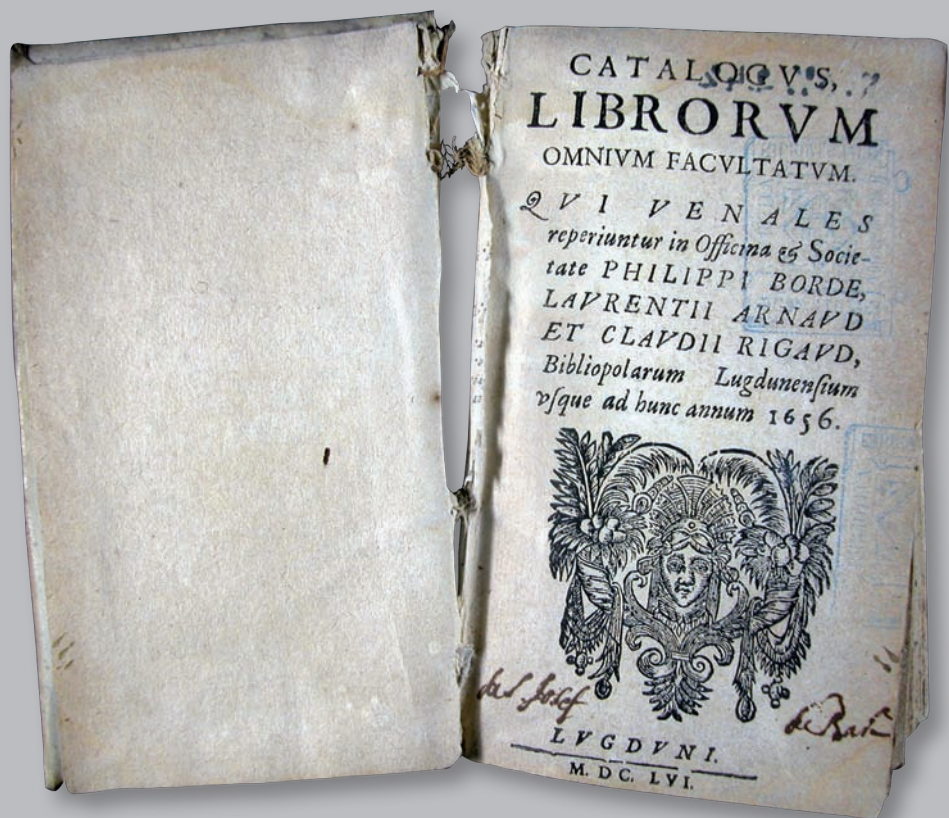 CATALOGVS,
LIBRORVM
OMNIVM FACVLTATVM.
QVI VENALES
reperiuntur in Officina & Socie-
tate PHILIPPI BORDE,
LAVRENTII ARNAVD
ET CLAVDII RIGAVD,
Bibliopolarum Lugdunensium
vsque ad hunc annum 1656.
Josef
LVGDVNI.
M. DC. LVI.